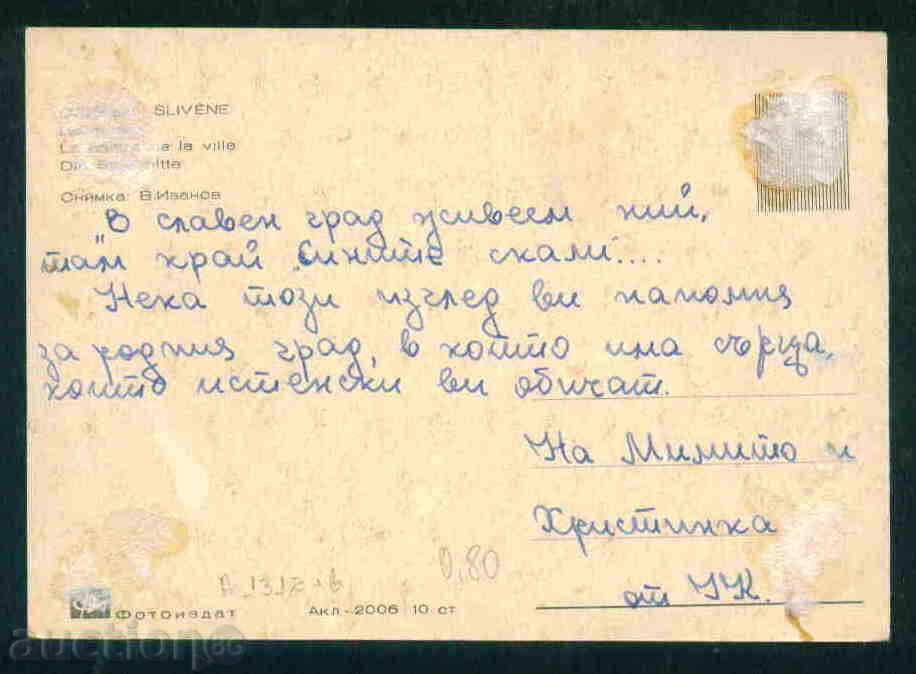 SLIVÈNE
la ville
Снимка: В.Иванов
"В славен град живеем ний,
там край "Сините скали....
Нека този изглед ви напомня
за родния град, в който има сърца,
които истенски ви обичат.
На Милито и
Христинка
от УК.
0,80
Фотоиздат
Акл-2006 10 ст
auction.bg